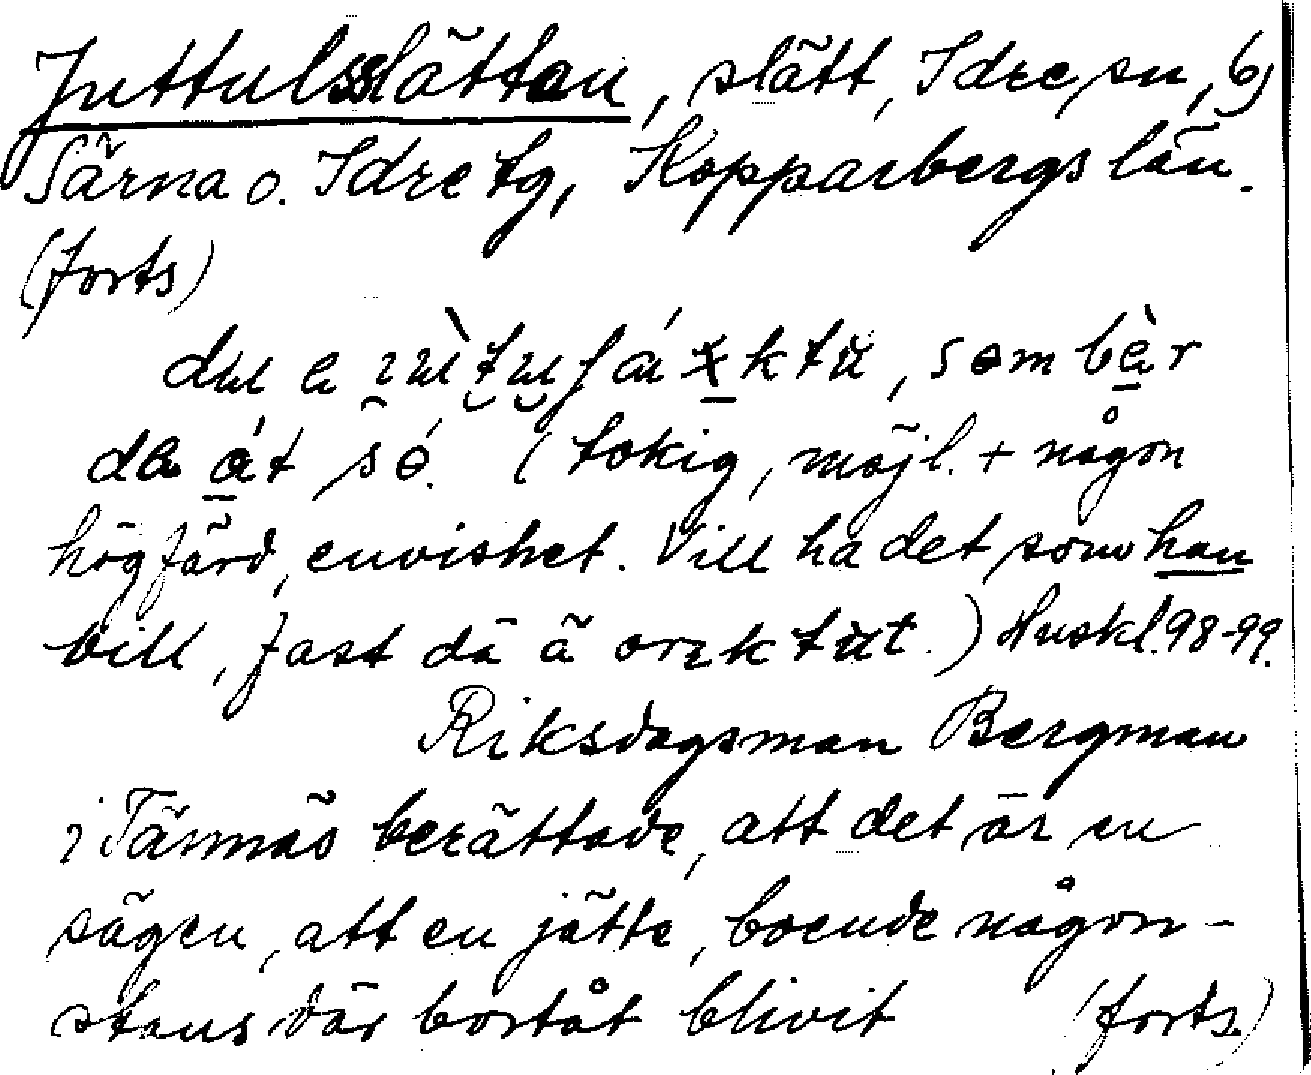 Juttulsslätten, slätt, Idre sn, 6)
Särna o. Idre tg, Kopparbergs län.
(forts)
som bèr
de át só. (tokig, möjl. + någon
högfärd, envishet. Vill ha det som han
vill, fast dä ä orɩktɩt.) Huskl. 98-99.
Riksdagsman Bergman
i Tännäs berättade, att det är en
sägen, att en jätte, boende någon-
stans där bortåt blivit (forts)